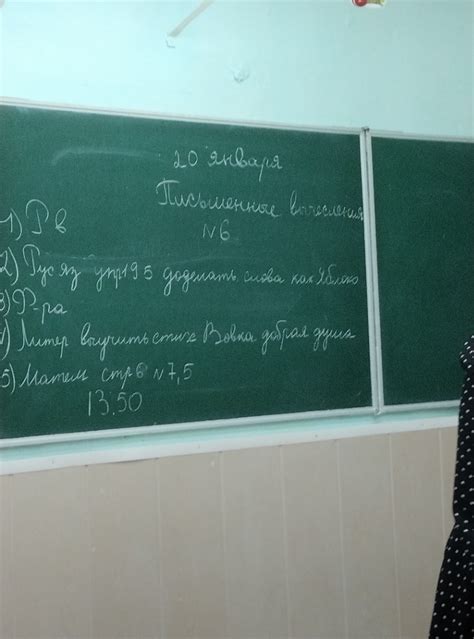 20 января
Письменные вычесления
№6
1) Рв
2) Рус яз упр195 доделать слова как Яблоко
3) Ф-ра
4) Литер выучить стих Вовка добрая душа
5) Матем стр6 №7,5
13.50